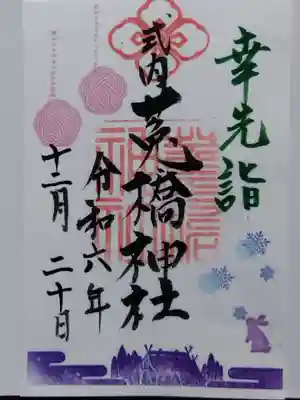 幸先詣
式内菟橋神社
令和六年
十二月二十日